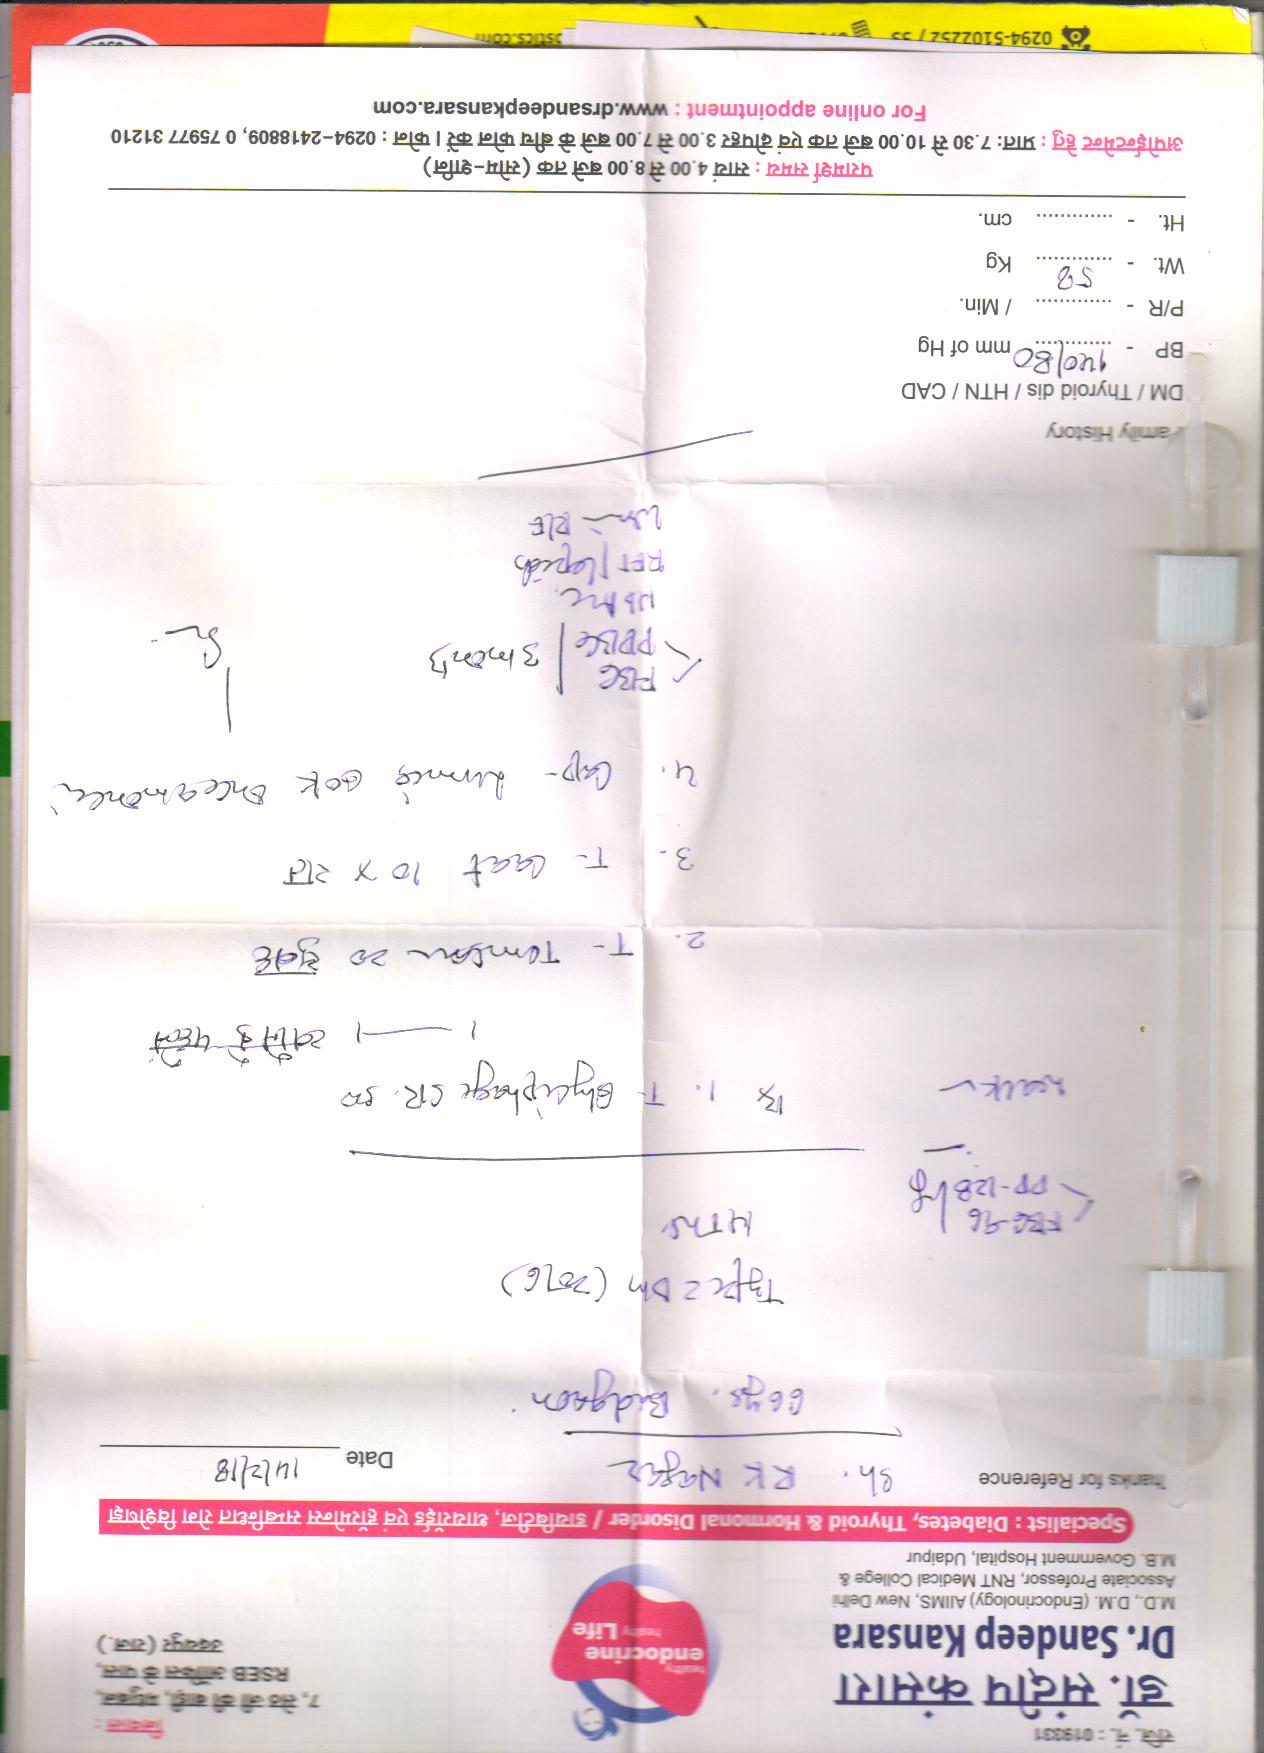 रजि. नं. : 019331
डॉ. संदीप कंसारा
Dr. Sandeep Kansara
M.D., D.M. (Endocrinology) AIIMS, New Delhi
Associate Professor, RNT Medical College &
M.B. Government Hospital, Udaipur
healthy
endocrine
healthy Life
निवास :
7, सेठ जी की बाड़ी, मधुबन,
RSEB ऑफिस के पास,
उदयपुर (राज.)
Specialist : Diabetes, Thyroid & Hormonal Disorder / डायबिटीज, थायरॉईड एवं हॉरमोन्स सम्बन्धित रोग विशेषज्ञ
Thanks for Reference
Sh. RK Nagar
Date 14/2/18
66 ys.
Type 2 DM (2016)
HTN
FBG-96
PP-128
Rx 1. T- Glyciphage SR. 500
1 — 1 खाने के पहले
2. T- 20 सुबह
3. T- 10 x रात
4. Cap- 60K
FBG
PPBG 3 month
HbA1c
RFT/Lipids
R/E
Family History
DM / Thyroid dis / HTN / CAD
BP - 140/80 mm of Hg
P/R - ............. / Min.
Wt. - 58 Kg
Ht. - ............. cm.
परामर्श समय : सायं 4.00 से 8.00 बजे तक (सोम-शनि)
अपोईन्टमेन्ट हेतु : प्रातः 7.30 से 10.00 बजे तक एवं दोपहर 3.00 से 7.00 बजे के बीच फोन करें। फोन : 0294-2418809, 0 75977 31210
For online appointment : www.drsandeepkansara.com
0294-5102252 / 55
ostics.com